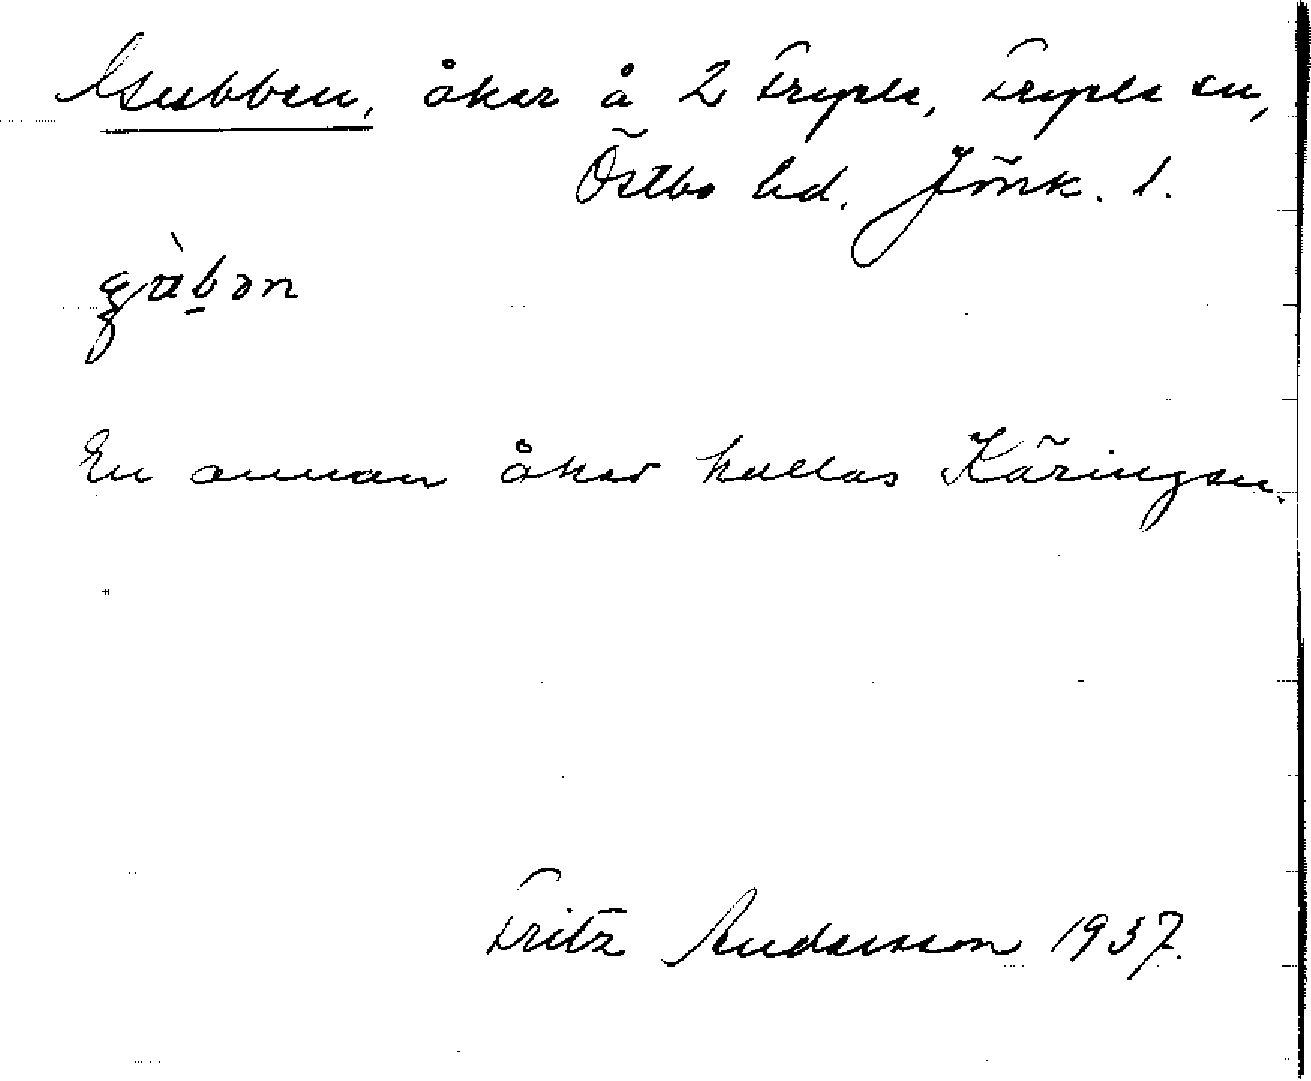 Gubben, åker å 2 Fryele, Fryele sn,
Östbo hd. Jönk. l.
En annan åker kallas Käringen.
Fritz Andersson 1937.